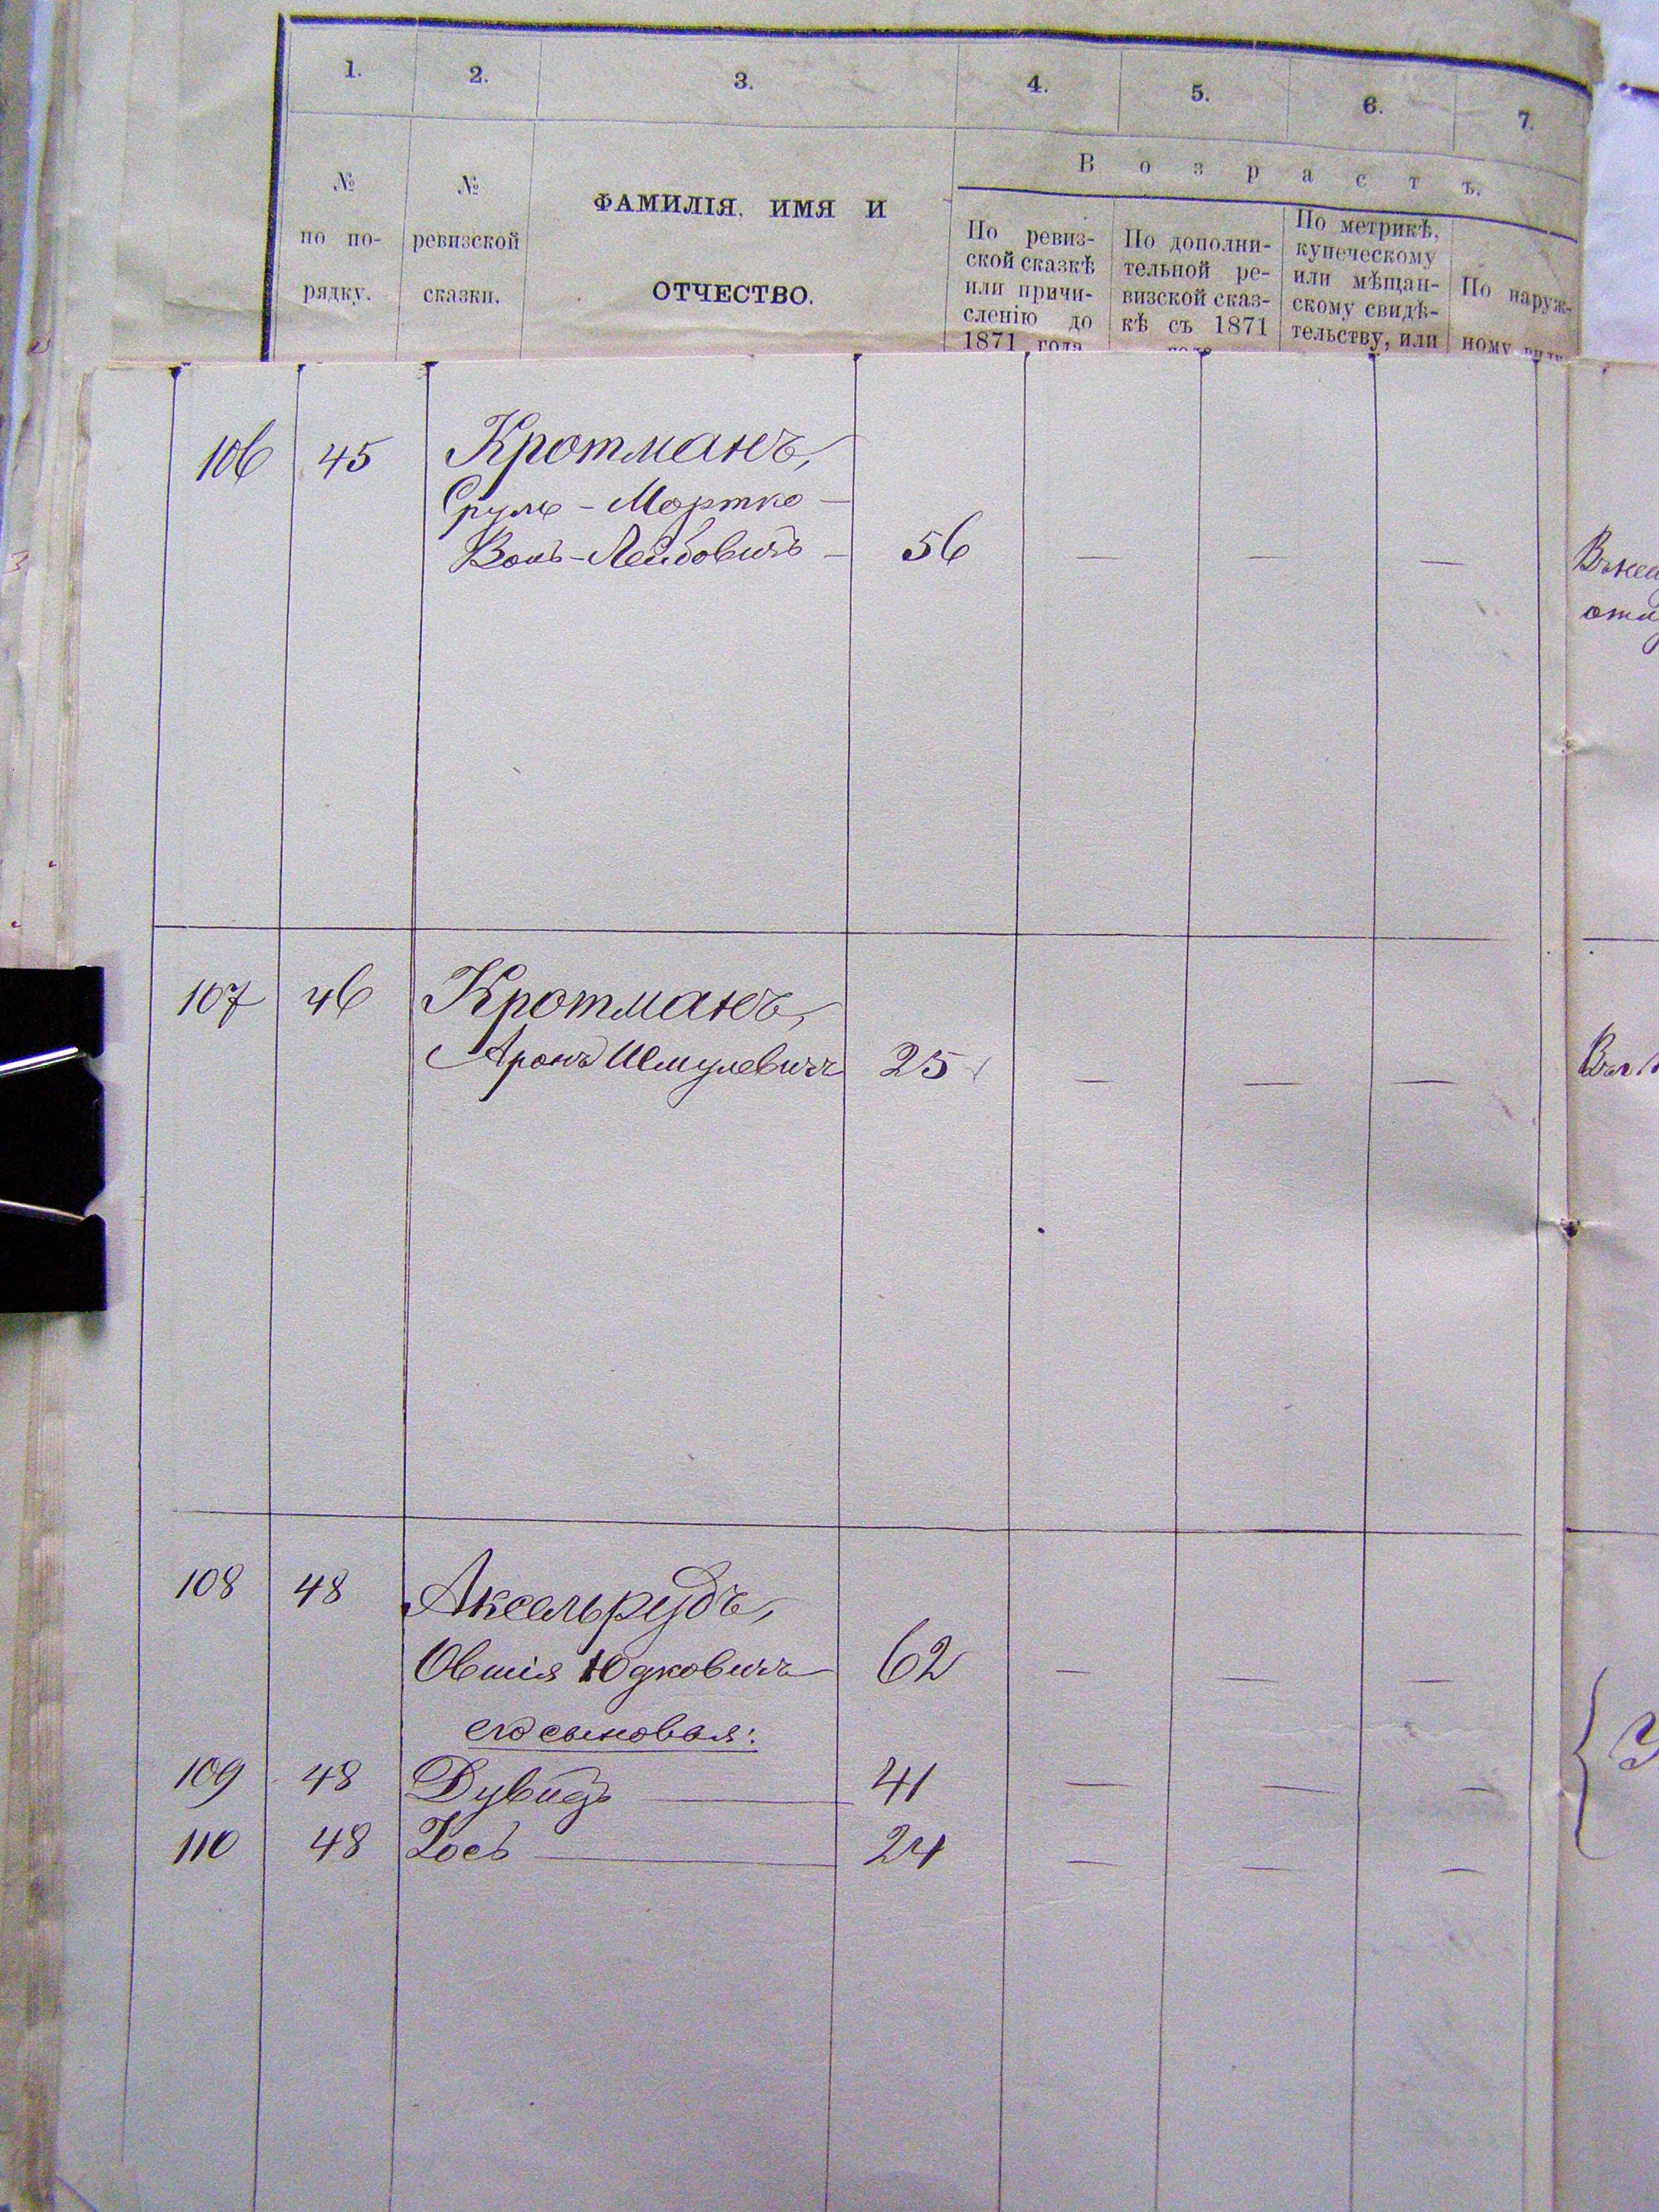 1. 2. 3. 4. 5. 6. 7.
В о з р а с т ъ.
№ по по-рядку.
№ ревизской сказки.
ФАМИЛІЯ, ИМЯ И
ОТЧЕСТВО.
По ревиз-
ской сказкѣ
или причи-
сленію до
1871 года
По дополни-
тельной ре-
визской сказ-
кѣ съ 1871
года
По метрикѣ,
купеческому
или мѣщан-
скому свидѣ-
тельству, или
По наруж-
ному виду
106 45 Кротманъ,
Сруль - Мортко -
Волъ - Лейбовичъ - 56 — — —
107 46 Кротманъ,
Аронъ Шмулевичъ 25 — — —
108 48 Аксельрудъ,
Овшія Юдковичъ 62 — — —
его сыновья:
109 48 Дувидъ — 41 — — —
110 48 Іось — 24 — — —